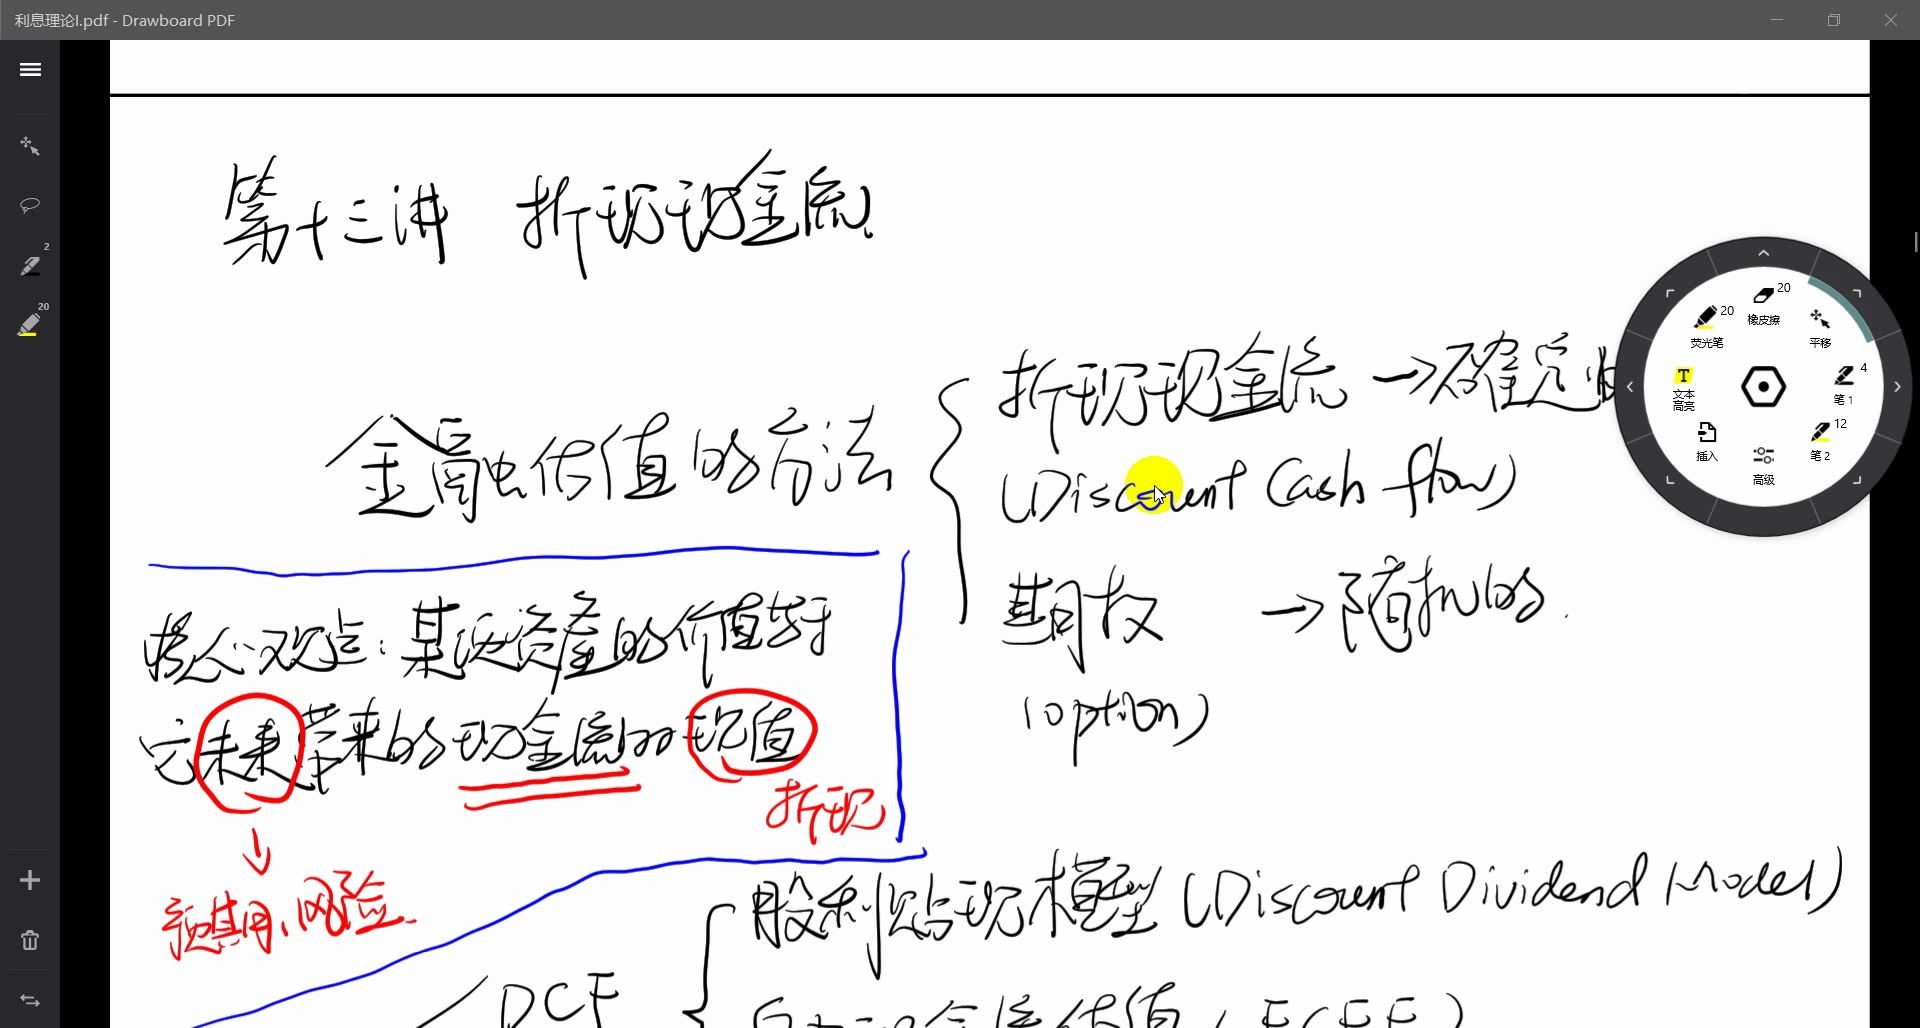 利息理论I.pdf - Drawboard PDF
第十三讲 折现现金流
金融估值的方法
折现现金流 → 確定
(Discount Cash flow)
期权 → 随机的.
(option)
核心观点: 某项资產的价值等于
它未来带来的现金流的现值
折现
预期、风险.
DCF
股利贴现模型 (Discount Dividend Model)
自由现金流估值 (FCFF)
2
20
20
橡皮擦
20
荧光笔
平移
4
笔 1
T
文本
高亮
12
笔 2
插入
高级